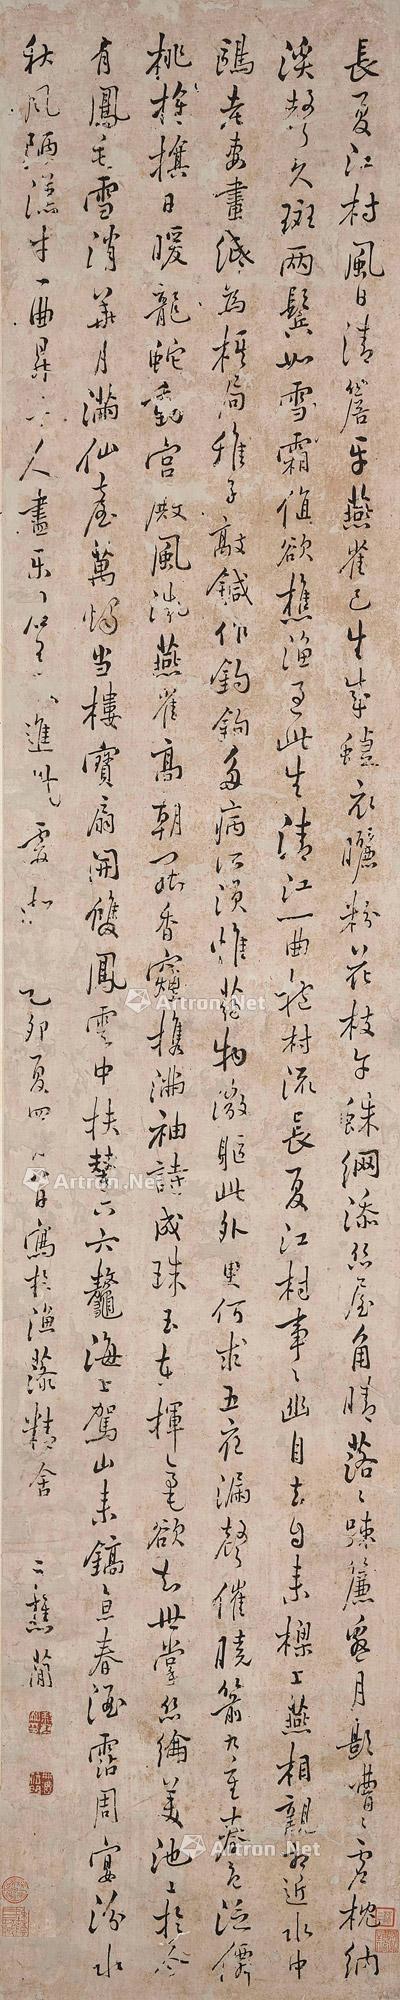 長夏江村風日清簷牙燕雀已生成蝶衣曬粉花枝午蛛網添絲屋角晴落落疎簾邀月影嘈嘈虛枕納
溪聲久斑兩鬢如雪霜值欲樵漁過此生清江一曲抱村流長夏江村事事幽自去自來樑上燕相親相近水中
鷗老妻畫紙為棋局稚子敲鍼作釣鉤多病所須惟藥物微軀此外更何求五夜漏聲催曉箭九重春色醉僊
桃旌旗日暖龍蛇動宮殿風微燕雀高朝罷香煙攜滿袖詩成珠玉在揮毫欲知世掌絲綸美池上於今
有鳳毛雪消華月滿仙臺萬燭當樓寶扇開雙鳳雲中扶輦下六鰲海上駕山來鎬京春酒霑周宴汾水
秋風陋漢才一曲昇平人盡樂君王 進
乙卯夏四月 日寫於漁 精舍
Artron.Net
Artron.Net
Artron.Net
Artron.Net
Artron.Net